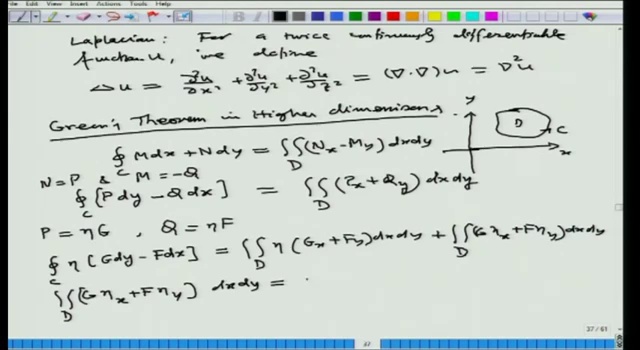 File Edit View Insert Actions Tools Help
Laplacian: For a twice continuously differentiable
function u, we define
Δu = ∂²u/∂x² + ∂²u/∂y² + ∂²u/∂z² = (∇·∇)u = ∇²u
Green's Theorem in Higher dimensions
y
D
C
x
∮_C Mdx + Ndy = ∬_D (N_x - M_y) dxdy
N = P & M = -Q
∮_C [P dy - Q dx] = ∬_D (P_x + Q_y) dxdy
P = ηG , Q = ηF
∮_C η [Gdy - Fdx] = ∬_D η (G_x + F_y) dxdy + ∬_D (Gη_x + Fη_y) dxdy
∬_D [Gη_x + Fη_y] dxdy =
37 / 61
37